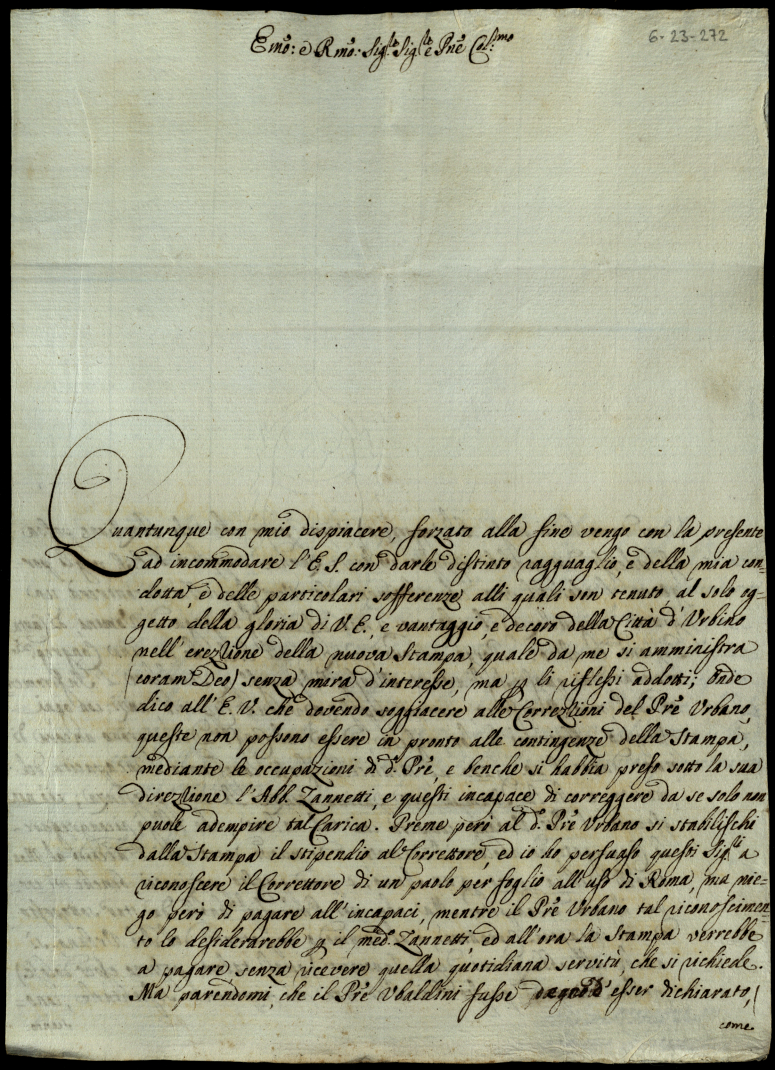 6-23-272
Emõ: e Rmõ: Sig.re Sig.re e Pnẽ Col.mo
Quantunque con mio dispiacere, forzato alla fine vengo con la presente
ad incommodare l'E. S. con darle distinto ragguaglio, e della mia con=
dotta, e delle particolari sofferenze alli quali son tenuto al solo og=
getto della gloria di V. E., e vantaggio, e decoro della Città d'Urbino
nell'erezzione della nuova Stampa, quale da me si amministra
(coram Deo) senza mira d'interesse, ma p li riflessi addotti; onde
dico all'E. V. che dovendo soggiacere alle Correzzioni del Prẽ Urbano,
queste non possono essere in pronto alle contingenze della Stampa,
mediante le occupazioni di d.º Prẽ, e benche si habbia preso sotto la sua
direzzione l'Abb. Zannetti, e questi incapace di correggere da se solo non
puole adempire tal Carica. Preme però al d.º Prẽ Urbano si stabilischi
dalla Stampa il stipendio al Correttore, ed io ho persuaso questi Sig.ri a
riconoscere il Correttore di un paolo per foglio all'uso di Roma, ma nie=
go però di pagare all'incapaci, mentre il Prẽ Urbano tal riconoscimen=
to lo desiderarebbe p il med.º Zannetti, ed all'ora la Stampa verrebbe
a pagare senza ricevere quella quotidiana servitù, che si richiede.
Ma parendomi, che il Prẽ Ubaldini fusse d'esser dichiarato,
come